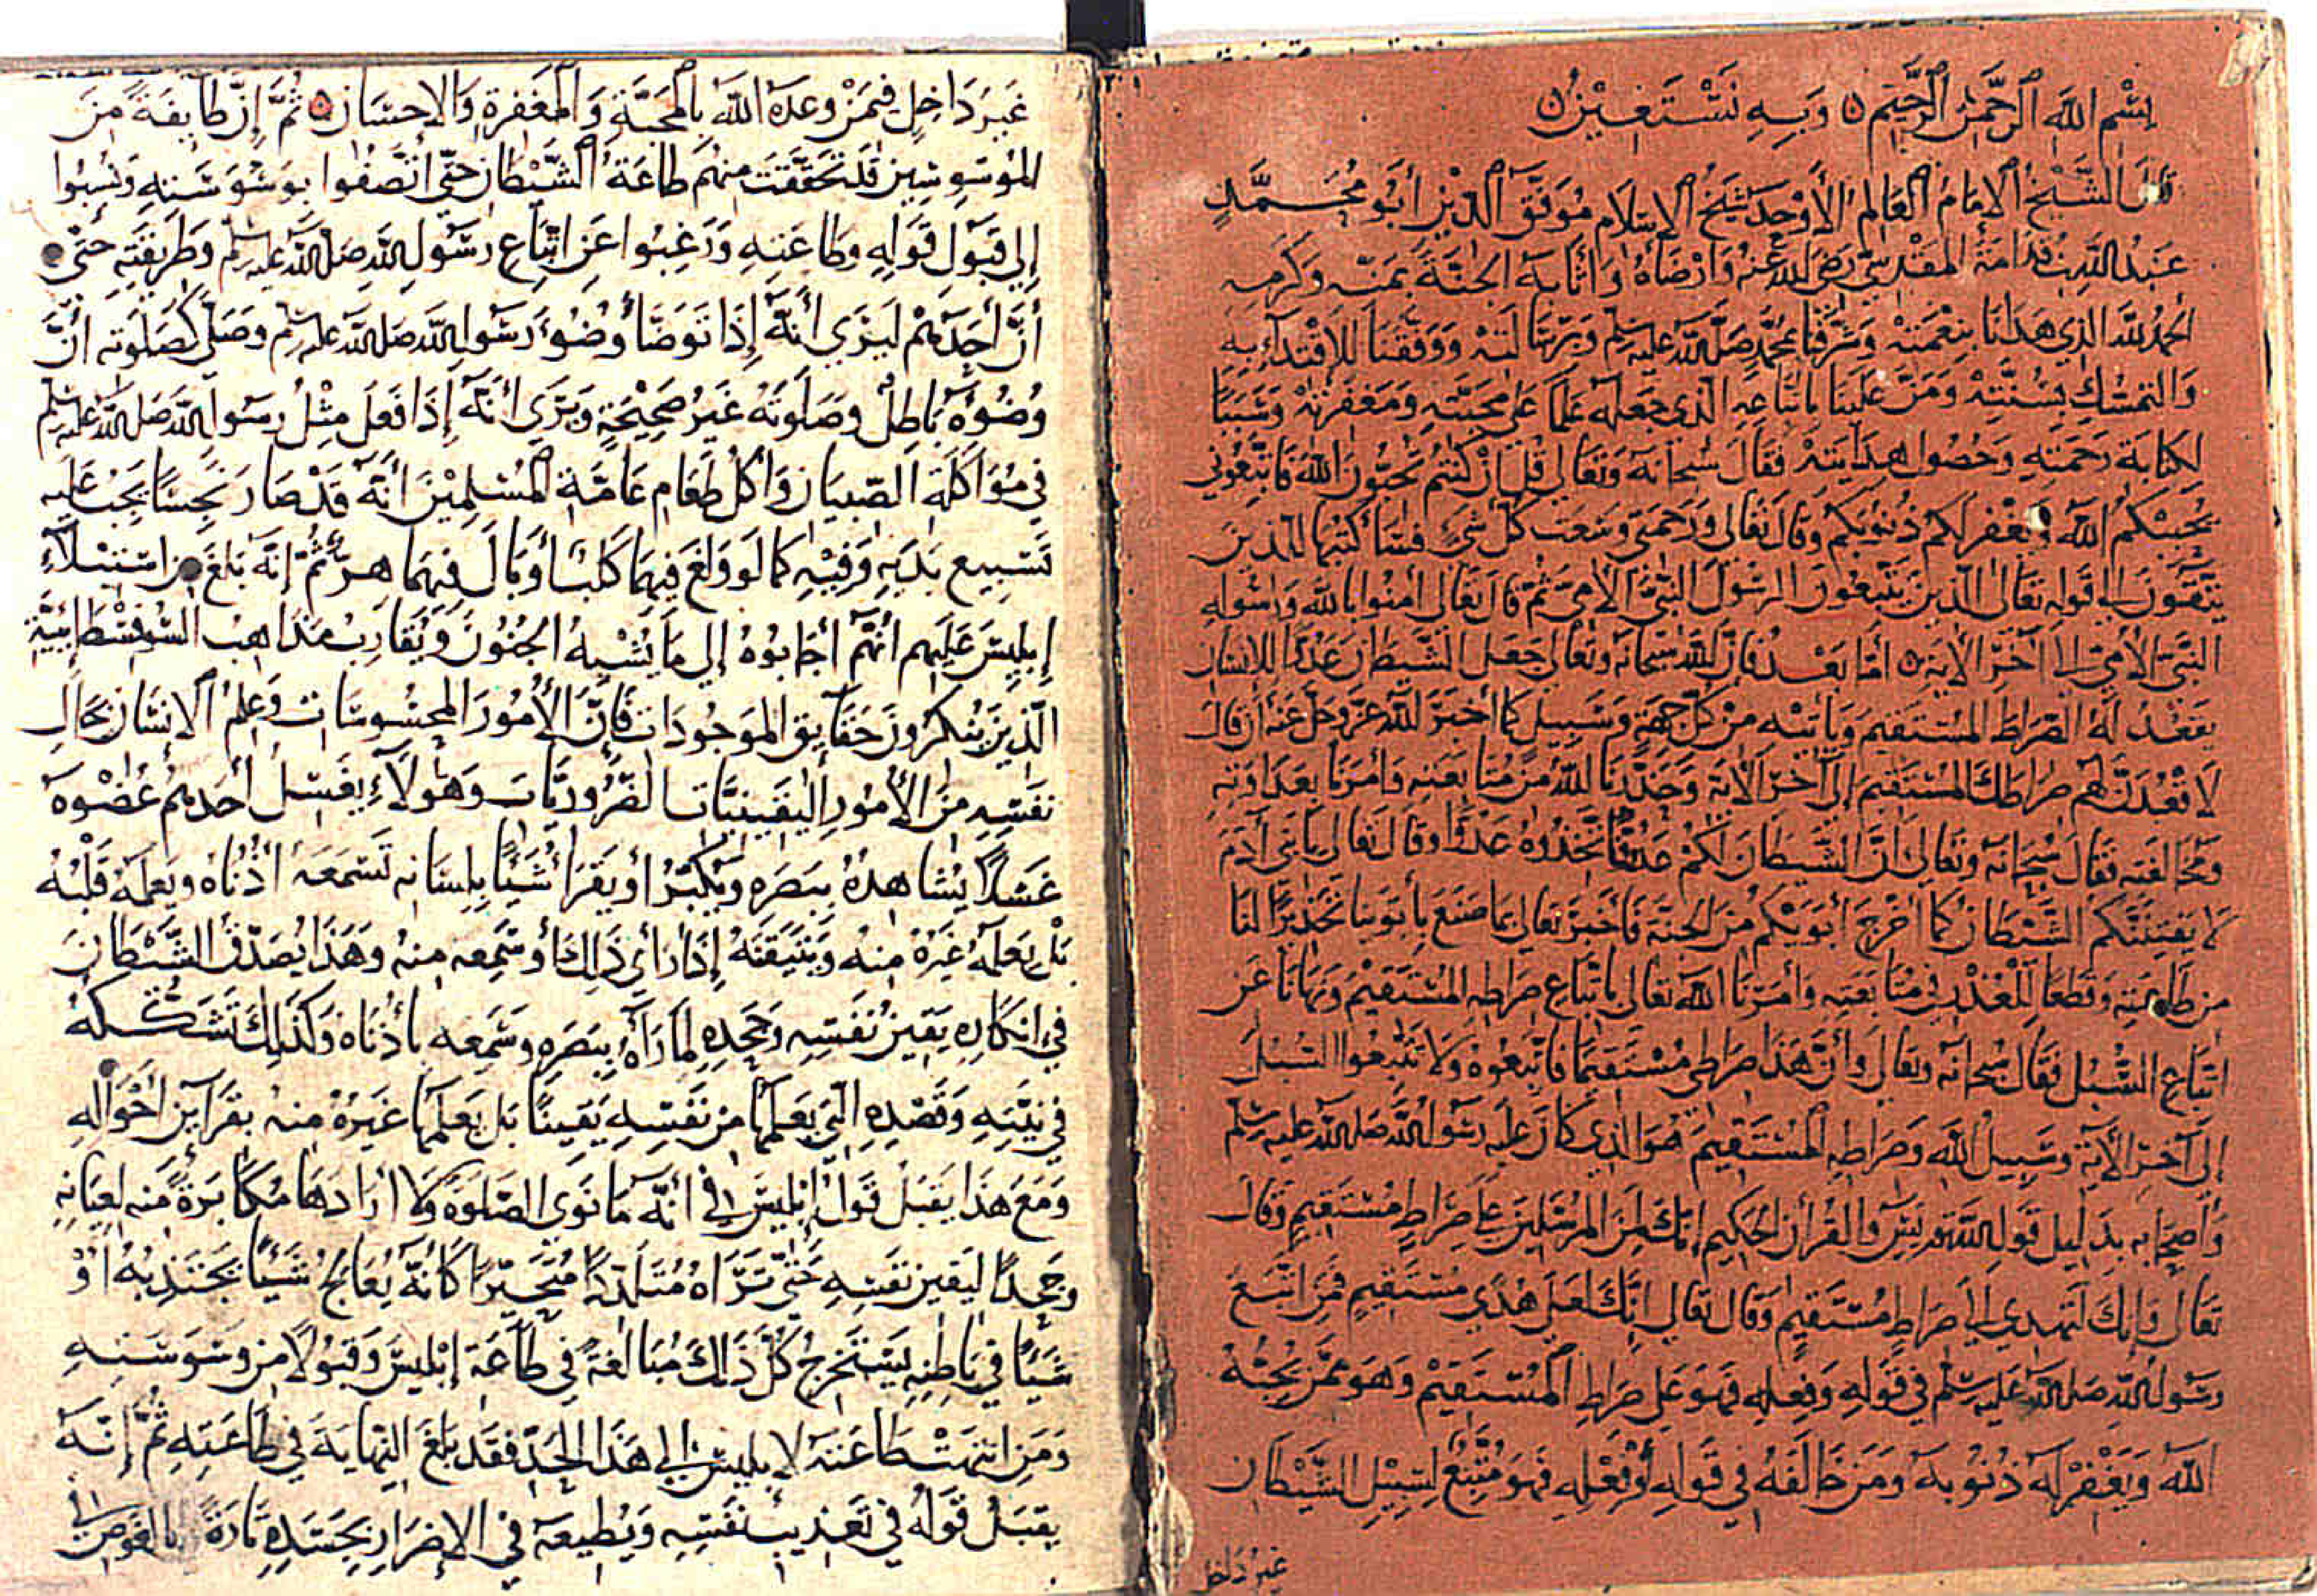 بسم الله الرحمن الرحيم ٥ وبه نستعين ٥
قال الشيخ الامام العالم الأوحد شيخ الاسلام موفق الدين أبو محمد
عبد الله بن قدامة المقدسي رضي الله عنه وارضاه واثابه الجنة بمنه وكرمه
الحمد لله الذي هدانا بنعمته وشرفنا بمحمد صلى الله عليه وسلم وبرسالته ووفقنا للاقتداء به
والتمسك بسنته ومن علينا باتباعه الذي جعله علما على محبته ومغفرته وسببا
لكتابة رحمته وحصول هدايته فقال سبحانه وتعالى قل ان كنتم تحبون الله فاتبعوني
يحببكم الله ويغفر لكم ذنوبكم وقال تعالى ورحمتي وسعت كل شيء فسأكتبها للذين
يتقون الى قوله تعالى الذين يتبعون الرسول النبي الامي ثم قال تعالى امنوا بالله ورسوله
النبي الامي الى آخر الاية ٥ أما بعد فإن الله سبحانه وتعالى جعل الشيطان عدوا للانسان
يقعد له الصراط المستقيم ويأتيه من كل جهة وسبيل كما أخبر الله عز وجل عنه أن قال
لاقعدن لهم صراطك المستقيم إلى آخر الآية وحذرنا الله من متابعته وامرنا بعداوته
ومخالفته فقال سبحانه وتعالى ان الشيطان لكم عدو فاتخذوه عدوا وقال تعالى يا بني آدم
لا يفتننكم الشيطان كما أخرج أبويكم من الجنة فأخبر تعالى بما صنع بأبوينا تحذيرا لنا
من طاعته وقطعا للعذر في متابعته وأمرنا الله تعالى باتباع صراطه المستقيم ونهانا عن
اتباع السبل فقال سبحانه وتعالى وأن هذا صراطي مستقيما فاتبعوه ولا تتبعوا السبل
إلى آخر الآية وسبيل الله وصراطه المستقيم هو الذي كان عليه رسول الله صلى الله عليه وسلم
وأصحابه بدليل قوله يس والقرآن الحكيم إنك لمن المرسلين على صراط مستقيم وقال
تعالى وإنك لتهدي إلى صراط مستقيم وقال تعالى إنك لعلى هدى مستقيم فمن اتبع
رسول الله صلى الله عليه وسلم في قوله وفعله فهو على صراط المستقيم وهو ممن يحبه
الله ويغفر له ذنوبه ومن خالفه في قوله أو فعله فهو متبع لسبيل الشيطان
غير داخل
غير داخل فيمن وعده الله بالمحبة والمغفرة والاحسان ٥ ثم إن طايفة من
الموسوسين قد تحققت منهم طاعة الشيطان حتى اتصفوا بوسوسته ونسبوا
إلى قبول قوله وطاعته ورغبوا عن اتباع رسول الله صلى الله عليه وسلم وطريقته حتى
أن أحدهم ليرى أنه إذا توضأ وضوء رسول الله صلى الله عليه وسلم وصلى كصلوته أن
وضوءه باطل وصلوته غير صحيحة ويرى أنه إذا فعل مثل رسول الله صلى الله عليه وسلم
في مؤاكلة الصبيان وأكل طعام عامة المسلمين أنه قد صار نجسا يجب عليه
تسبيع يديه وفيه كما لو ولغ فيهما كلب أو بال فيهما هر ثم إنه بلغ من استيلاء
إبليس عليهم أنهم أجابوه إلى ما يشبه الجنون ويقارب مذاهب السوفسطائية
الذين ينكرون حقايق الموجودات فإن الأمور المحسوسات وعلم الانسان بحال
نفسه من الأمور اليقينيات الضروريات وهؤلاء يغسل أحدهم عضوه
غسلا يشاهده ببصره ويكبر أو يقرأ شيئا بلسانه تسمعه أذناه ويعلمه قلبه
بل يعلمه غيره منه ويتيقنه إذا رأى ذلك أو سمعه منه وهذا يصدق الشيطان
في انكاره يقين نفسه وجحده لما رآه ببصره وسمعه بأذناه وكذلك تشككه
في نيته وقصده التي يعلمها من نفسه يقينا بل يعلمها غيره منه بقرآين أحواله
ومع هذا يقبل قول إبليس في أنه ما نوى الصلوة ولا ارادها مكابرة منه لعيانه
وجحدا ليقين نفسه حتى تراه متلددا متحيرا كأنه يعالج شيئا يجتذبه أو
شيئا في باطنه يستخرج كل ذلك مبالغة في طاعة إبليس وقبولا من وسوسته
ومن انتهت طاعته لإبليس إلى هذا الحد فقد بلغ النهاية في طاعته ثم إنه
يقبل قوله في تعذيب نفسه ويطيعه في الإضرار بجسده تارة بالغوص في